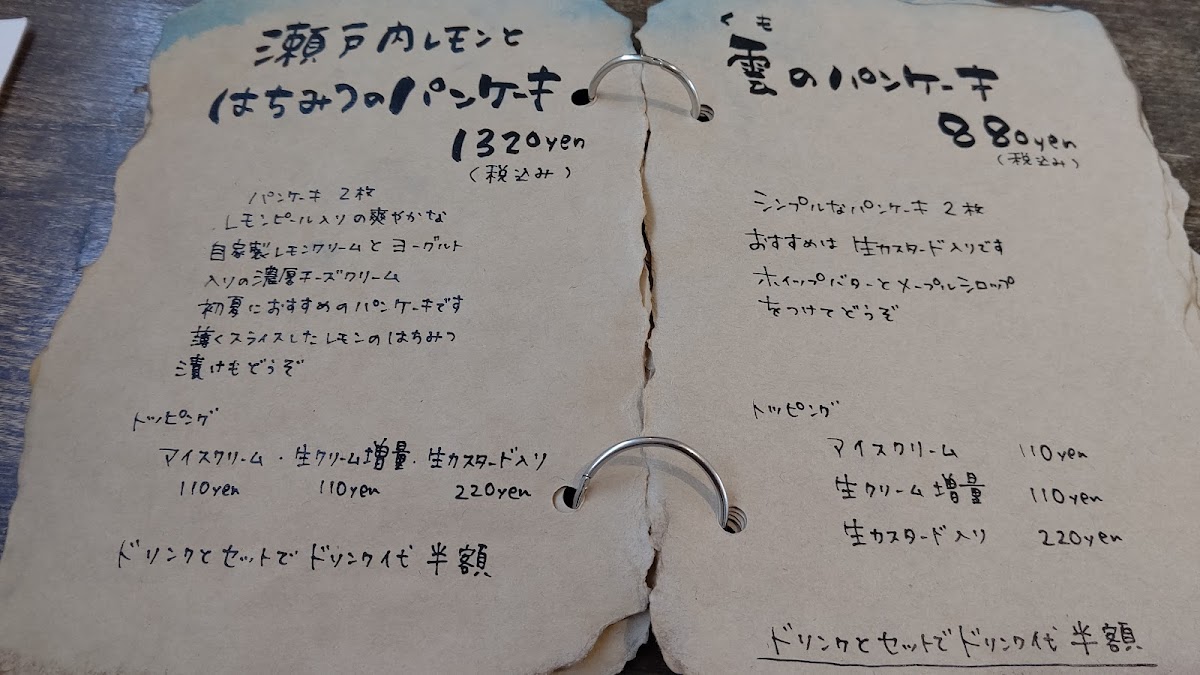 瀬戸内レモンと
はちみつのパンケーキ
1320yen
(税込み)
パンケーキ 2枚
レモンピール入りの爽やかな
自家製レモンクリームとヨーグルト
入りの濃厚チーズクリーム
初夏におすすめのパンケーキです
薄くスライスしたレモンのはちみつ
漬けもどうぞ
トッピング
アイスクリーム ・ 生クリーム増量 ・ 生カスタード入り
110yen 110yen 220yen
ドリンクとセットでドリンク代 半額
くも
雲のパンケーキ
880yen
(税込み)
シンプルなパンケーキ 2枚
おすすめは 生カスタード入りです
ホイップバターとメープルシロップ
をつけてどうぞ
トッピング
アイスクリーム 110yen
生クリーム増量 110yen
生カスタード入り 220yen
ドリンクとセットでドリンク代 半額